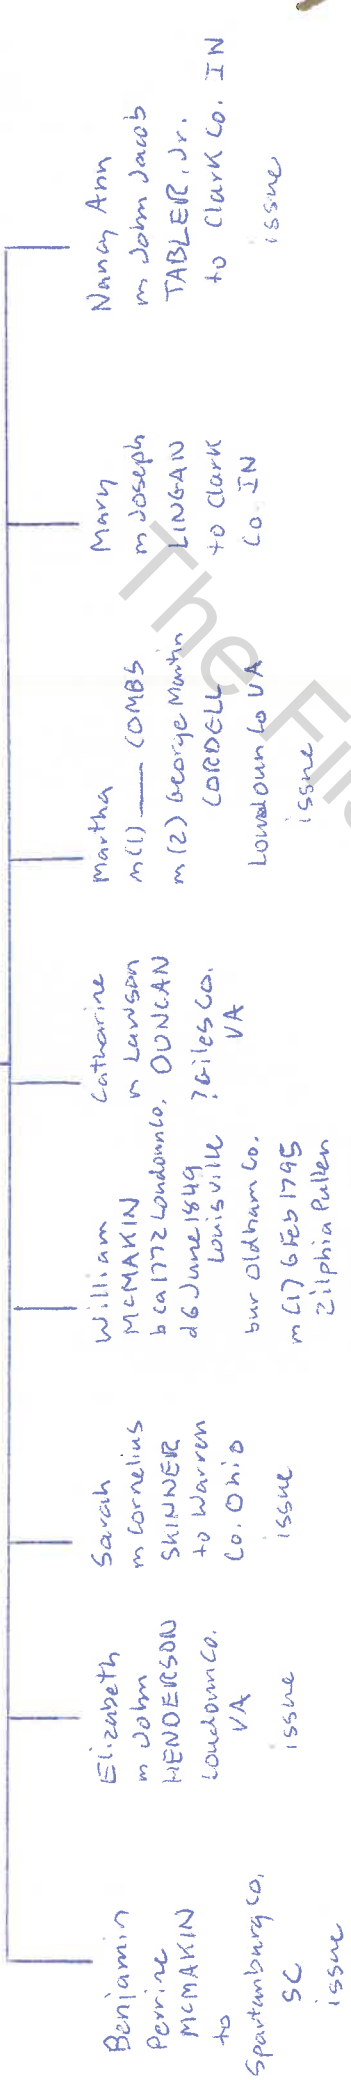 Benjamin
Perrine
MCMAKIN
to
Spartanburg Co,
SC
issue
Elizabeth
m John
HENDERSON
Loudoun Co.
VA
issue
Sarah
m Cornelius
SKINNER
to Warren
Co. Ohio
issue
William
MCMAKIN
b ca 1772 Loudoun Co,
d 6 June 1849
Louisville
bur Oldham Co.
m (1) 6 Feb 1795
Zilphia Pullen
Catharine
m Lawson
DUNCAN
? Giles Co.
VA
Martha
m (1) ___ COMBS
m (2) George Martin
CORDELL
Loudoun Co VA
issue
Mary
m Joseph
LINGAN
to Clark
Co. IN
Nancy Ann
m John Jacob
TABLER, Jr.
to Clark Co. IN
issue
The Fil